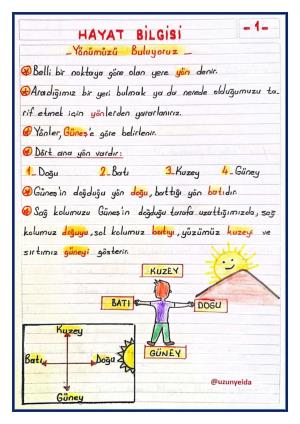 HAYAT BİLGİSİ
-1-
- Yönümüzü Buluyoruz -
Belli bir noktaya göre olan yere yön denir.
Aradığımız bir yeri bulmak ya da nerede olduğumuzu ta-
rif etmek için yönlerden yararlanırız.
Yönler, Güneş'e göre belirlenir.
Dört ana yön vardır:
1- Doğu 2- Batı 3- Kuzey 4- Güney
Güneş'in doğduğu yön doğu, battığı yön batıdır.
Sağ kolumuzu Güneş'in doğduğu tarafa uzattığımızda, sağ
kolumuz doğuyu, sol kolumuz batıyı, yüzümüz kuzeyi ve
sırtımız güneyi gösterir.
KUZEY
BATI DOĞU
GÜNEY
Kuzey
Batı Doğu
Güney
@uzunyelda